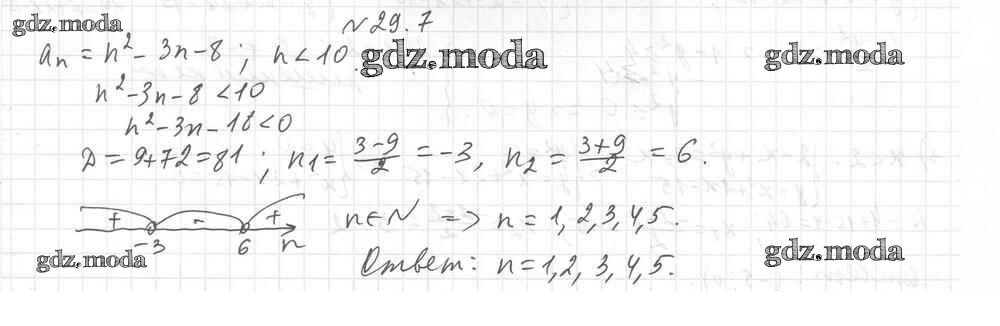 gdz.moda
№29.7
aₙ = n² - 3n - 8 ; n < 10. gdz.moda gdz.moda
n² - 3n - 8 < 10
n² - 3n - 18 < 0
D = 9+72 = 81 ; n₁ = (3-9)/2 = -3, n₂ = (3+9)/2 = 6.
+ - +
-3 6 n
n∈N => n = 1, 2, 3, 4, 5.
gdz.moda
Ответ: n = 1, 2, 3, 4, 5.
gdz.moda